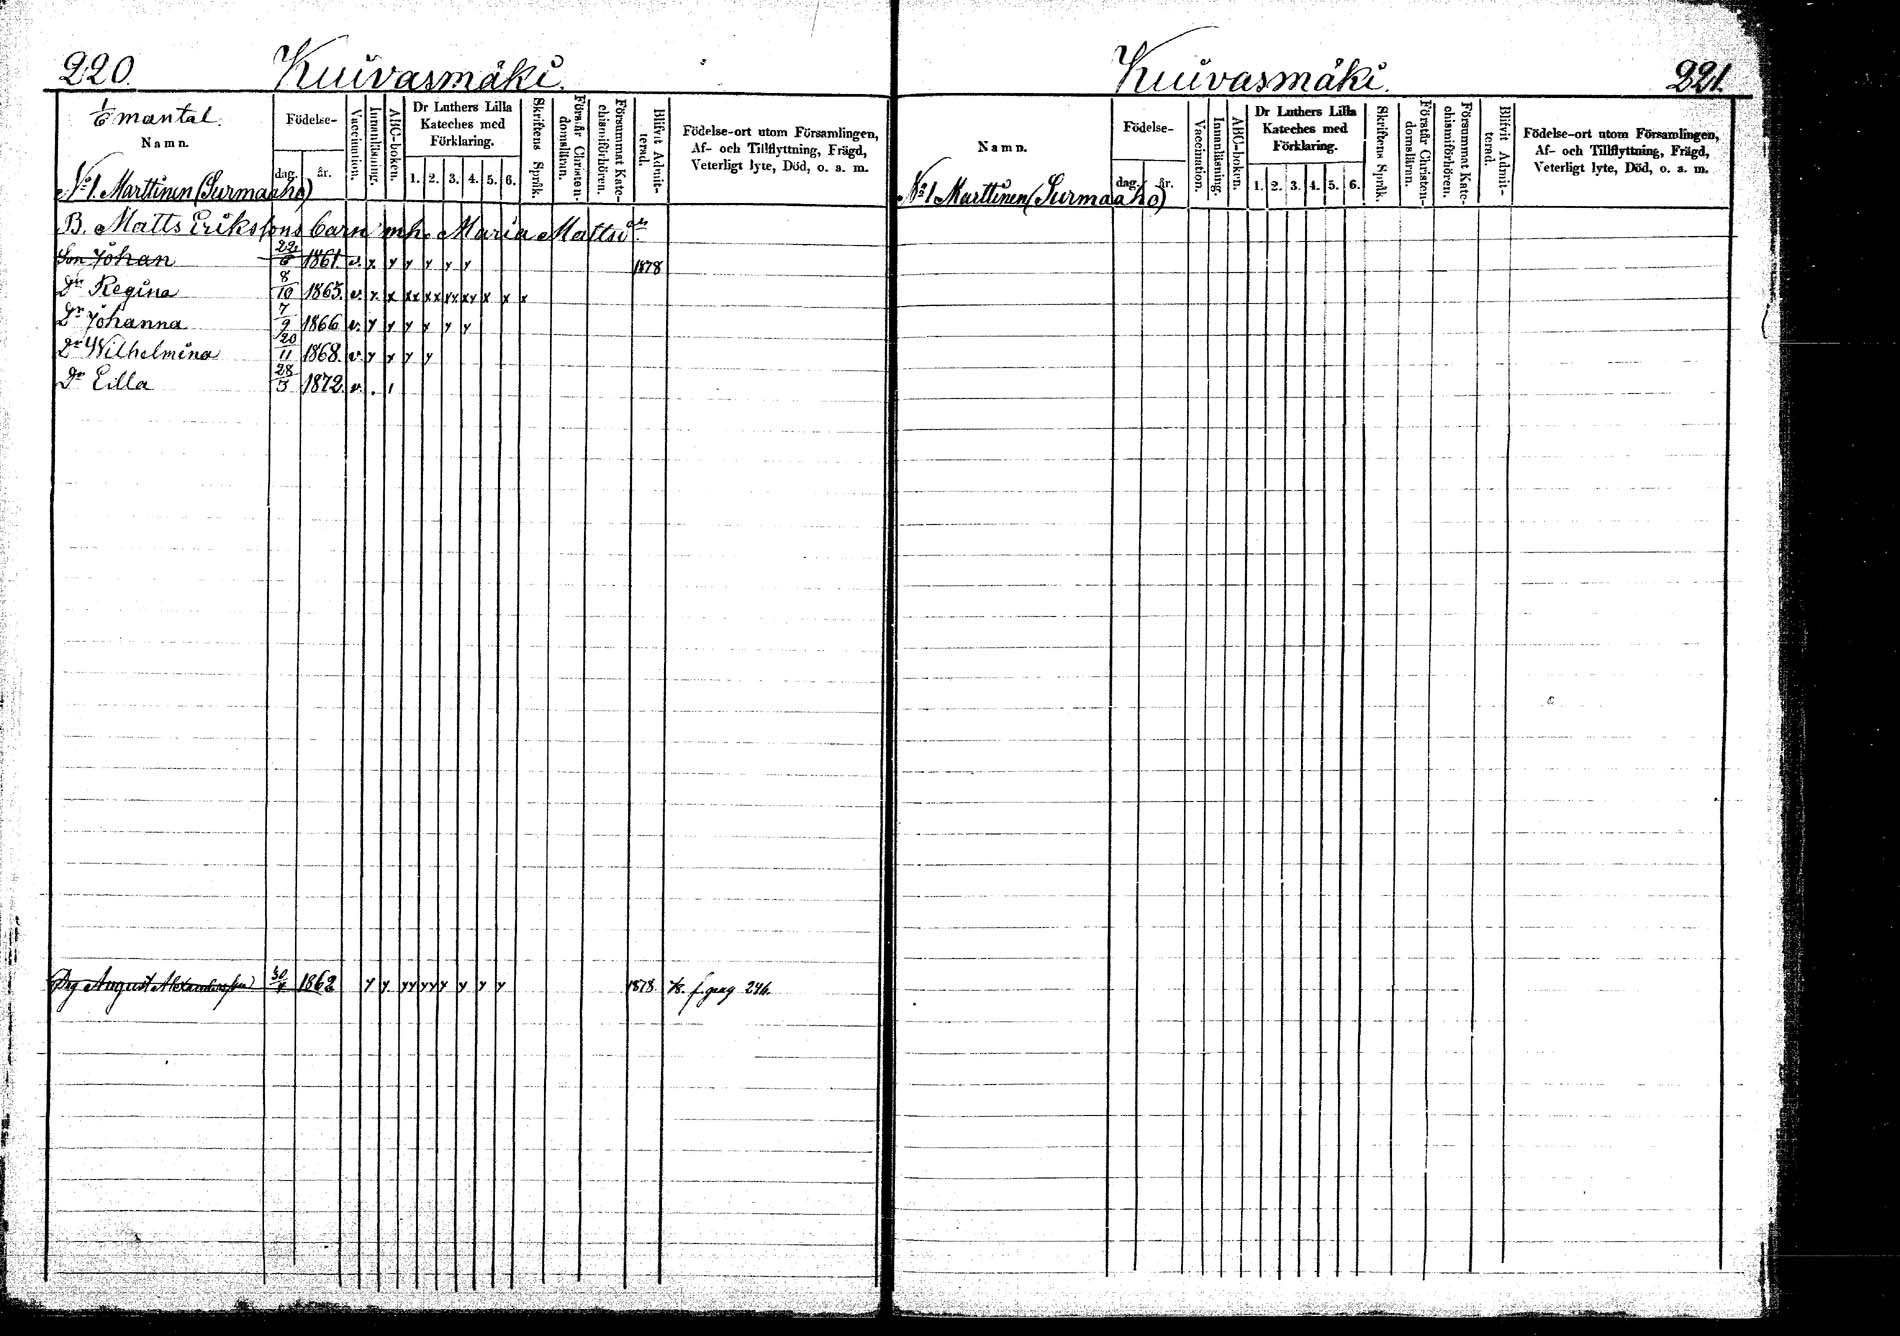 220.
Kuivasmäki.
1/6 mantal.
Namn.
Födelse-
dag.
år.
Vaccination.
Innanläsning.
ABC-boken.
Dr Luthers Lilla
Kateches med
Förklaring.
1. 2. 3. 4. 5. 6.
Skriftens Språk.
Förstår Christen-
domsläran.
Försummat Kate-
chismiförhören.
Blifvit Admit-
terad.
Födelse-ort utom Församlingen,
Af- och Tillflyttning, Frägd,
Veterligt lyte, Död, o. a. m.
No 1. Marttinen (Surmaaho)
B. Matts Erikssons barn mh. Maria Mattsdr
Son Johan 22/6 1861. v. x y y y y y 1878
Dr Regina 8/10 1865. v. x x xx xx xx xx x x x
Dr Johanna 7/9 1866 v. y y y y y y
Dr Wilhelmina 20/11 1868. v. y y y y
Dr Eilla 28/3 1872. v. . 1
Drg August Alexandersson 1862 y y yy yy y y y y 1878. f. pag 246.
Kuivasmäki.
221.
Namn.
Födelse-
dag.
år.
Vaccination.
Innanläsning.
ABC-boken.
Dr Luthers Lilla
Kateches med
Förklaring.
1. 2. 3. 4. 5. 6.
Skriftens Språk.
Förstår Christen-
domsläran.
Försummat Kate-
chismiförhören.
Blifvit Admit-
terad.
Födelse-ort utom Församlingen,
Af- och Tillflyttning, Frägd,
Veterligt lyte, Död, o. a. m.
No 1 Marttinen (Surmaaho)